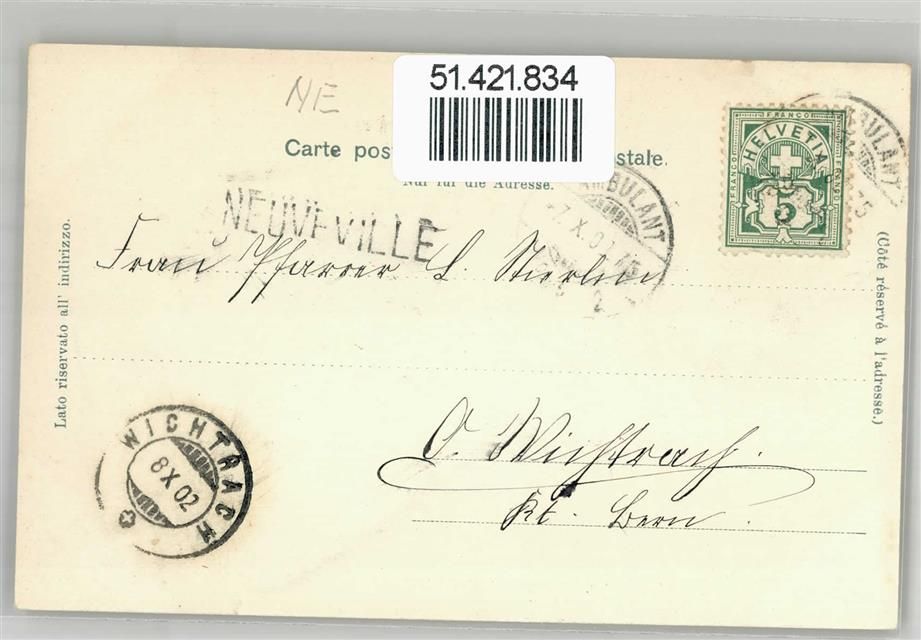 51.421.834
NE
Carte pos stale.
Nur für die Adresse.
NEUVEVILLE
AMBULANT
7.X.02
2
FRANCO
HELVETIA
FRANCO
FRANCO
5
AMBULANT
Frau Pfarrer L. Stierlin
Lato riservato all' indirizzo.
(Côté réservé à l'adresse.)
O. Wichtrach.
Kt. Bern.
WICHTRACH
8 X 02